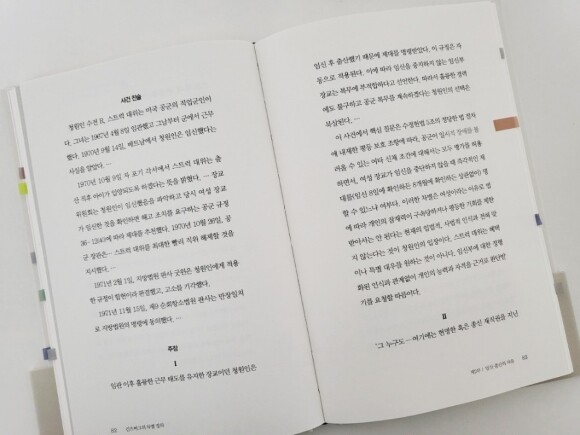 사건 진술
청원인 수전 R. 스트럭 대위는 미국 공군의 직업군인이
다. 그녀는 1967년 4월 8일 임관했고 그날부터 군에서 근무
했다. 1970년 9월 14일, 베트남에서 청원인은 임신했다는
사실을 알았다. …
1970년 10월 9일 자 표기 각서에서 스트럭 대위는 출
산 직후 아이가 입양되도록 하겠다는 뜻을 밝혔다. … 장교
위원회는 청원인이 임신했음을 파악하고 당시 여성 장교
가 임신한 것을 확인하면 해고 조치를 요구하는 공군 규정
36-12(40)에 따라 제대를 추천했다. 1970년 10월 26일, 공
군 장관은… 스트럭 대위를 최대한 빨리 직위 해제할 것을
지시했다. …
1971년 2월 1일, 지방법원 판사 군원은 청원인에게 적용
한 규정이 합헌이라 판결했고, 고소를 기각했다.
1971년 11월 15일, 제9 순회항소법원 판사는 만장일치
로 지방법원의 명령에 동의했다. …
주장
I
임관 이후 훌륭한 근무 태도를 유지한 장교이던 청원인은
82 긴즈버그의 차별 정의
임신 후 출산했기 때문에 제대를 명령받았다. 이 규정은 자
동으로 적용된다. 이에 따라 임신을 중지하지 않는 임신부
장교는 복무에 부적합하다고 선언한다. 따라서 훌륭한 경력
에도 불구하고 공군 복무를 계속하겠다는 청원인의 선택은
묵살된다. …
이 사건에서 핵심 질문은 수정헌법 5조의 정당한 법 절차
에 내재한 평등 보호 조항에 따라, 공군이 일시적 장애를 불
러올 수 있는 여타 신체 조건에 대해서는 모두 평가를 허용
하면서, 여성 장교가 임신을 중단하지 않을 때 즉각적인 제
대를(임신 8일에 확인하든 8개월에 확인하든 상관없이) 명령
할 수 있느냐 여부다. 이러한 차별은 여성이라는 이유로 법
에 따라 개인의 잠재력이 구속당하거나 평등한 기회를 제한
받아서는 안 된다는 현재의 입법적, 사법적 인식과 전혀 맞
지 않는다는 것이 청원인의 입장이다. 스트럭 대위는 혜택
이나 특별 대우를 원하는 것이 아니다. 임신부에 대한 정형
화된 인식과 관계없이 개인의 능력과 자격을 근거로 판단받
기를 요청할 따름이다.
II
“그 누구도… 여기에는 현명한 혹은 종신 재직권을 지닌
83